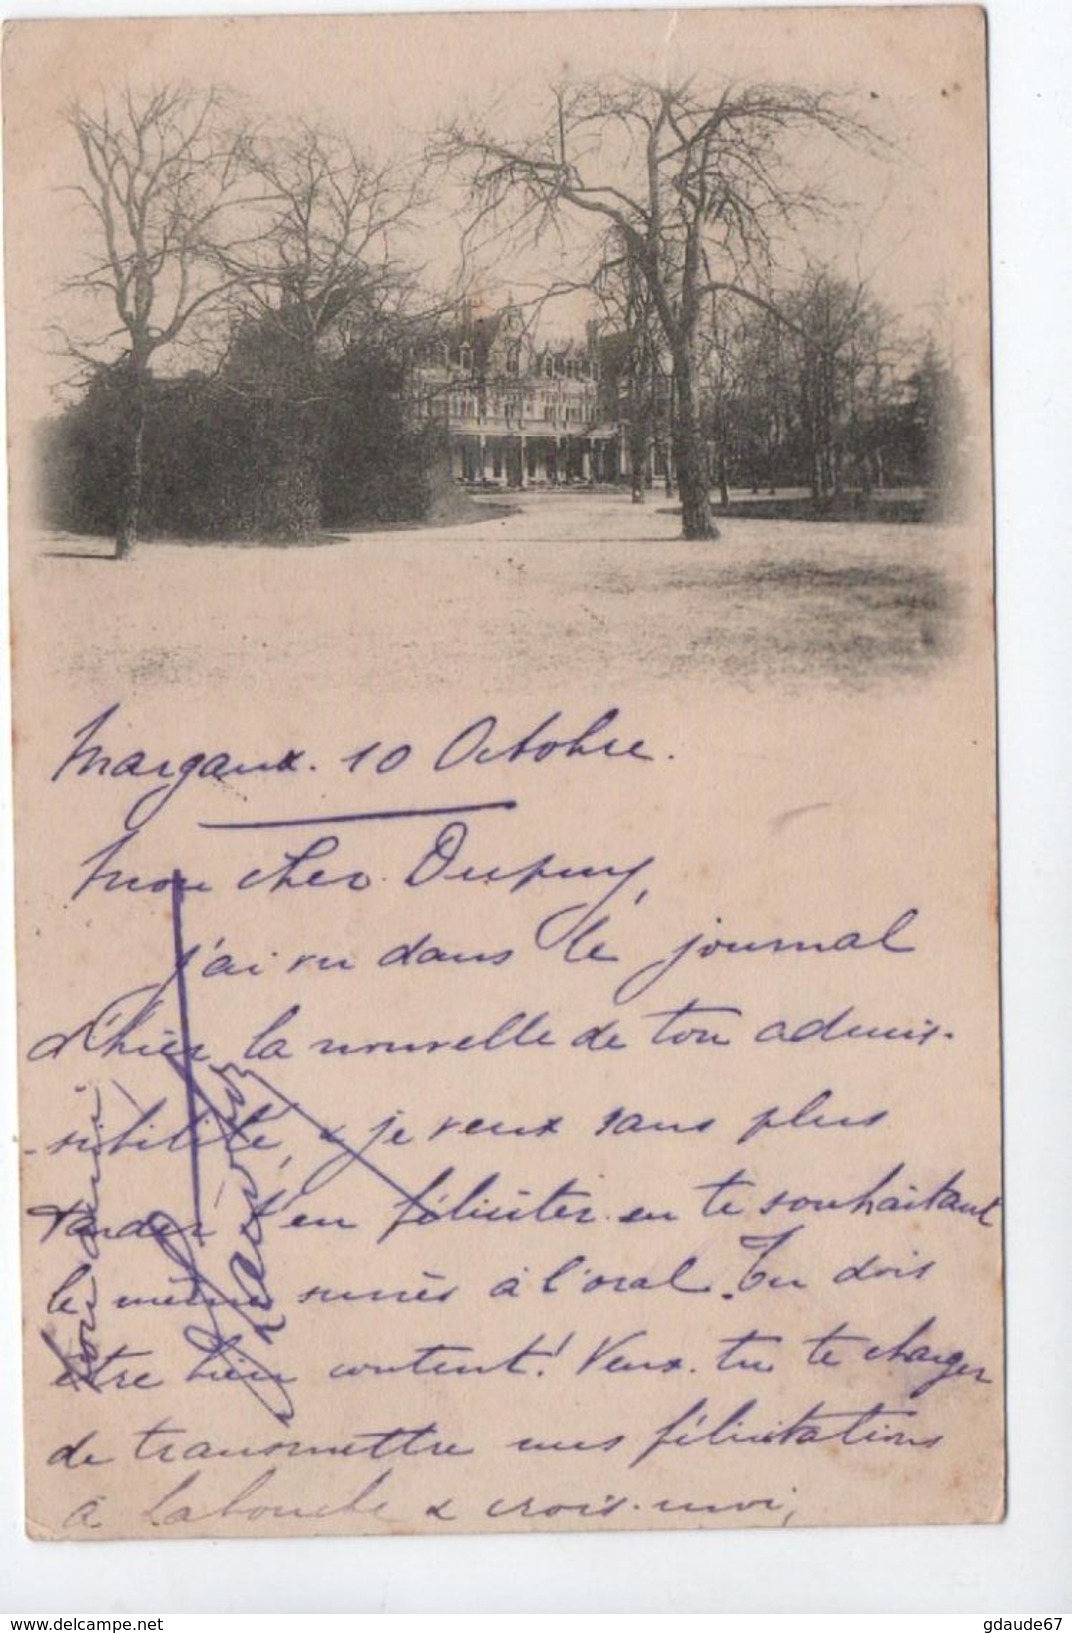 Margaux. 10 Octobre.
Mon cher Dupuy,
j'ai vu dans le journal
d'hier la nouvelle de ton admis-
-sibilité, & je veux sans plus
tarder t'en féliciter en te souhaitant
le même succès à l'oral. Tu dois
être bien content! Veux-tu te charger
de transmettre mes félicitations
à Labouche & crois-moi,
ton ami
delcampe.net
gdaude67